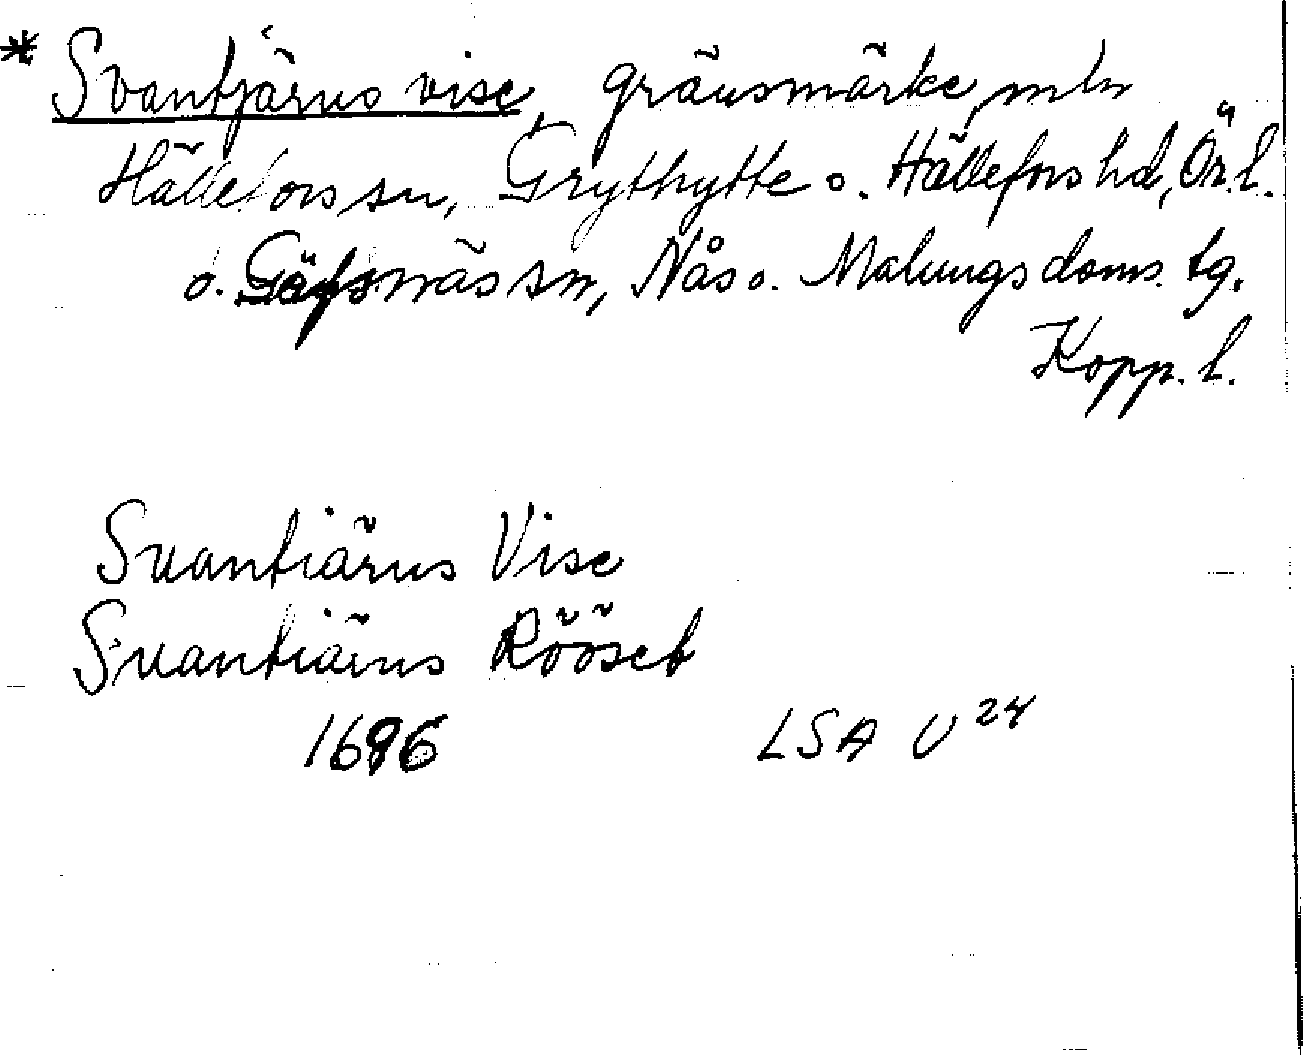 * Svantjärns vise, gränsmärke mln
Hällefors sn, Grythytte o. Hällefors hd, Ör. l.
o. Säfsnäs sn, Nås o. Malungs doms. tg.
Kopp. l.
Suantiärns Vise
Suantiärns Rööset
1696 LSA U 24